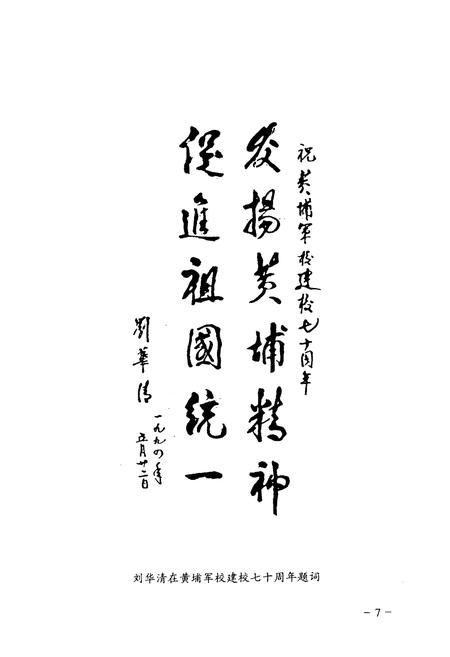 祝黄埔军校建校七十周年
发揚黄埔精神
促進祖國統一
劉華清
一九九四年
五月廿二日
刘华清在黄埔军校建校七十周年题词
-7-